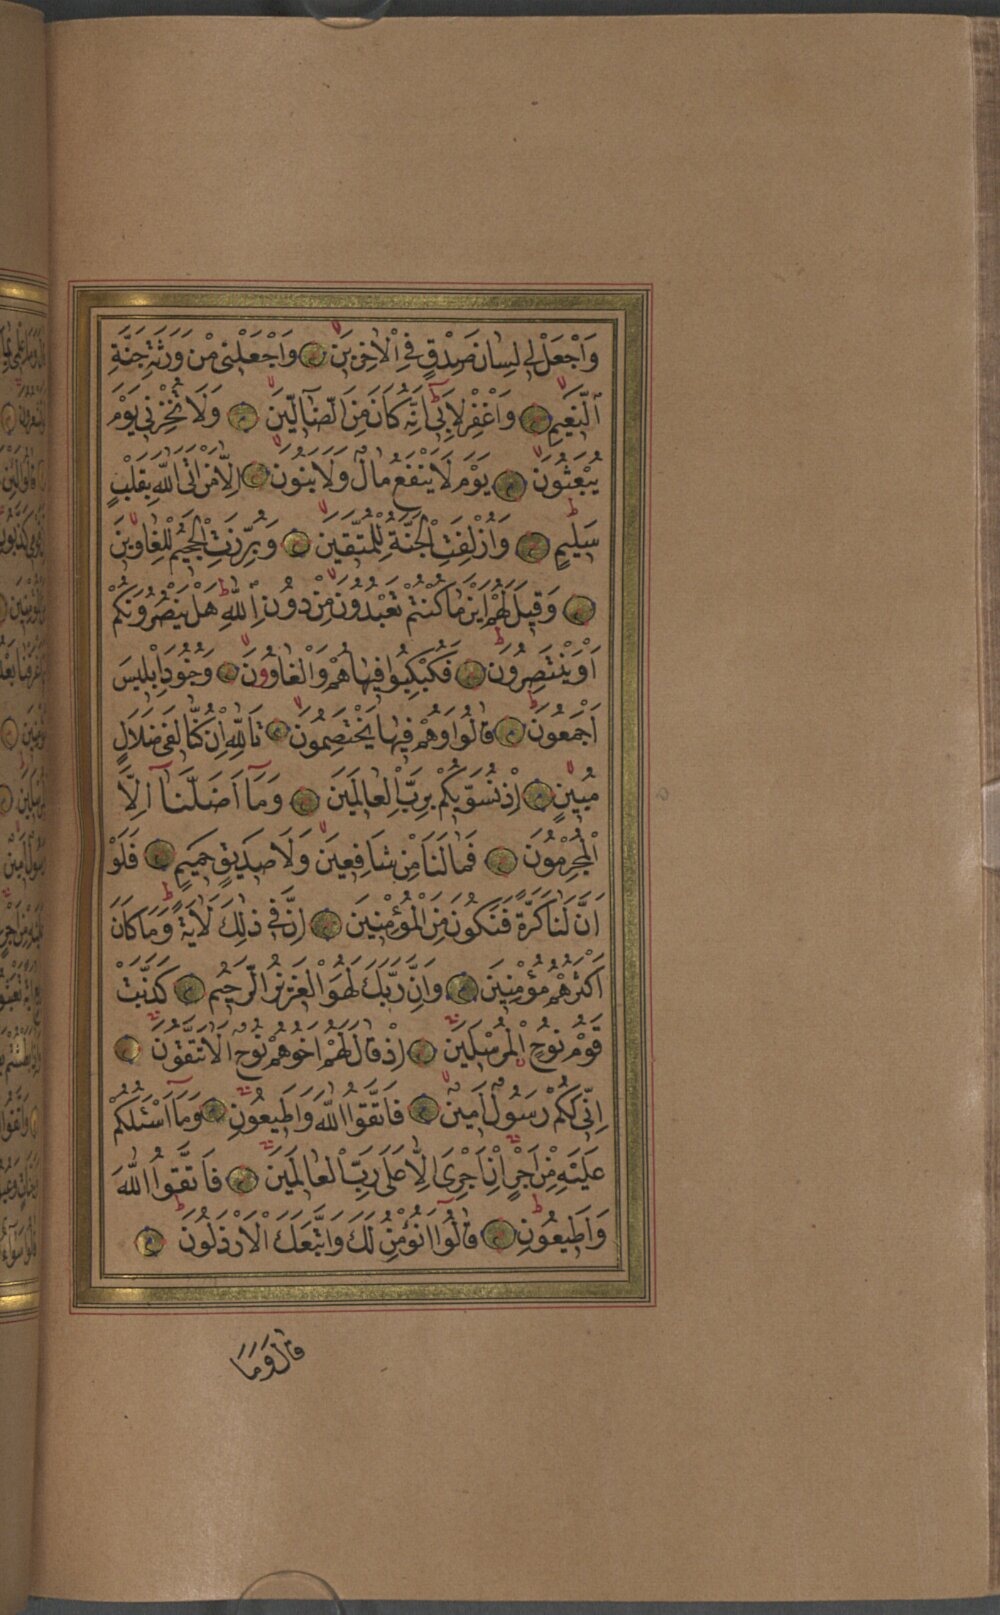 وَاجْعَلْ لِي لِسَانَ صِدْقٍ فِي الْاٰخِرِينَ وَاجْعَلْنِي مِنْ وَرَثَةِ جَنَّةِ
النَّعِيمِ وَاغْفِرْ لِاَبِي اِنَّهُ كَانَ مِنَ الضَّالِّينَ وَلَا تُخْزِنِي يَوْمَ
يُبْعَثُونَ يَوْمَ لَا يَنْفَعُ مَالٌ وَلَا بَنُونَ اِلَّا مَنْ اَتَى اللّٰهَ بِقَلْبٍ
سَلِيمٍ وَاُزْلِفَتِ الْجَنَّةُ لِلْمُتَّقِينَ وَبُرِّزَتِ الْجَحِيمُ لِلْغَاوِينَ
وَقِيلَ لَهُمْ اَيْنَ مَا كُنْتُمْ تَعْبُدُونَ مِنْ دُونِ اللّٰهِ هَلْ يَنْصُرُونَكُمْ
اَوْ يَنْتَصِرُونَ فَكُبْكِبُوا فِيهَا هُمْ وَالْغَاوُونَ وَجُنُودُ اِبْلِيسَ
اَجْمَعُونَ قَالُوا وَهُمْ فِيهَا يَخْتَصِمُونَ تَاللّٰهِ اِنْ كُنَّا لَفِي ضَلَالٍ
مُبِينٍ اِذْ نُسَوِّيكُمْ بِرَبِّ الْعَالَمِينَ وَمَا اَضَلَّنَا اِلَّا
الْمُجْرِمُونَ فَمَا لَنَا مِنْ شَافِعِينَ وَلَا صَدِيقٍ حَمِيمٍ فَلَوْ
اَنَّ لَنَا كَرَّةً فَنَكُونَ مِنَ الْمُؤْمِنِينَ اِنَّ فِي ذٰلِكَ لَاٰيَةً وَمَا كَانَ
اَكْثَرُهُمْ مُؤْمِنِينَ وَاِنَّ رَبَّكَ لَهُوَ الْعَزِيزُ الرَّحِيمُ كَذَّبَتْ
قَوْمُ نُوحٍ الْمُرْسَلِينَ اِذْ قَالَ لَهُمْ اَخُوهُمْ نُوحٌ اَلَا تَتَّقُونَ
اِنِّي لَكُمْ رَسُولٌ اَمِينٌ فَاتَّقُوا اللّٰهَ وَاَطِيعُونِ وَمَا اَسْئَلُكُمْ
عَلَيْهِ مِنْ اَجْرٍ اِنْ اَجْرِيَ اِلَّا عَلَى رَبِّ الْعَالَمِينَ فَاتَّقُوا اللّٰهَ
وَاَطِيعُونِ قَالُوا اَنُؤْمِنُ لَكَ وَاتَّبَعَكَ الْاَرْذَلُونَ
قَالَ وَمَا